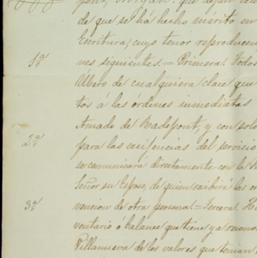 de que se há hecho mérito en
Escritura; cuyo tenor reproducen
nes siguientes. — Primera: Todos
1ª
Albero de cualquiera clase que
tos á las órdenes inmediatas
Amado de Badepont, y con solo
2ª
para las exigencias del servicio
se comunicará directamente con la
Señor su Esposo, de quien recibirá las
3ª
vencion de otra persona — Tercera:
ventario ó balance que tiene ya
Villanueva de los valores que tenian